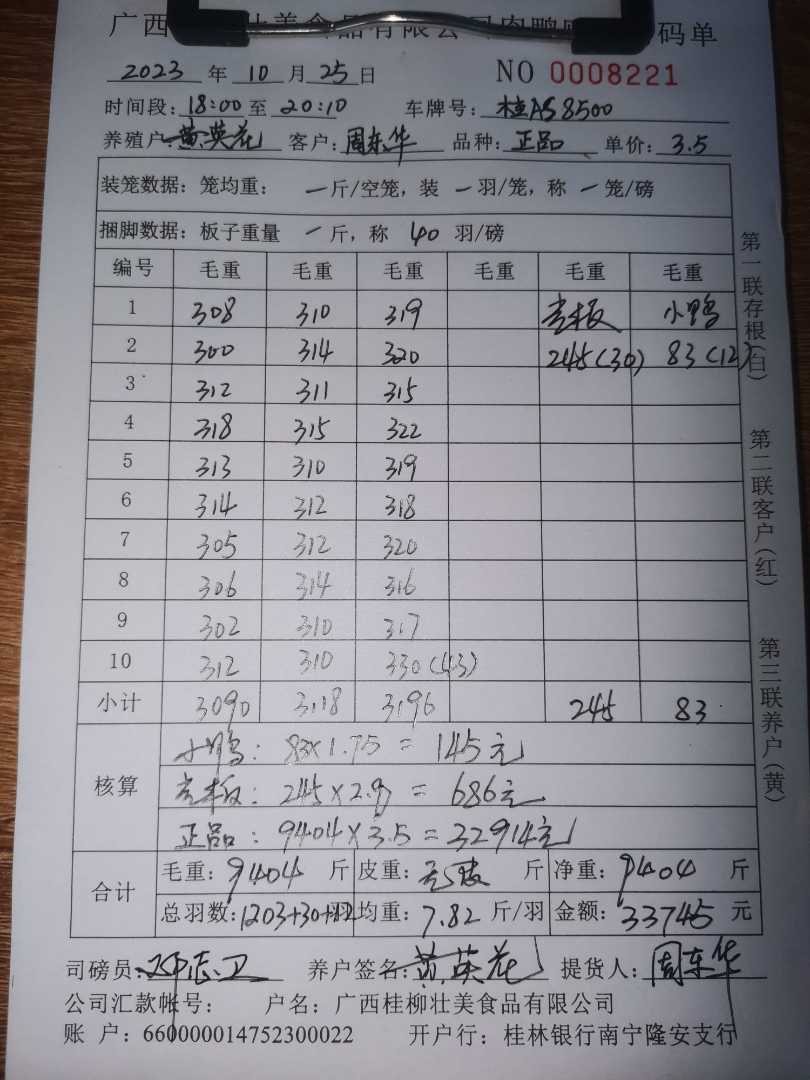 广西 壮美食品有限公司肉鸭 码单
2023 年 10 月 25 日 NO 0008221
时间段: 18:00 至 20:10 车牌号: 桂AS8500
养殖户: 黄英花 客户: 周东华 品种: 正品 单价: 3.5
装笼数据: 笼均重: 一 斤/空笼, 装 一 羽/笼, 称 一 笼/磅
捆脚数据: 板子重量 一 斤, 称 40 羽/磅
编号 毛重 毛重 毛重 毛重 毛重 毛重
1 308 310 319 壳板 小鸭
2 300 314 320 245(30) 83(12)
3 312 311 315
4 318 315 322
5 313 310 319
6 314 312 318
7 305 312 320
8 306 314 316
9 302 310 317
10 312 310 330(43)
小计 3090 3118 3196 245 83
核算 小鸭: 83×1.75 = 145元
壳板: 245×2.8 = 686元
正品: 9404×3.5 = 32914元
合计 毛重: 9404 斤 皮重: 斤 净重: 9404 斤
总羽数: 1203+30+12 均重: 7.82 斤/羽 金额: 33745 元
司磅员: 养户签名: 黄英花 提货人: 周东华
公司汇款帐号: 户名: 广西桂柳壮美食品有限公司
账 户: 660000014752300022 开户行: 桂林银行南宁隆安支行
第一联存根(白)
第二联客户(红)
第三联养户(黄)